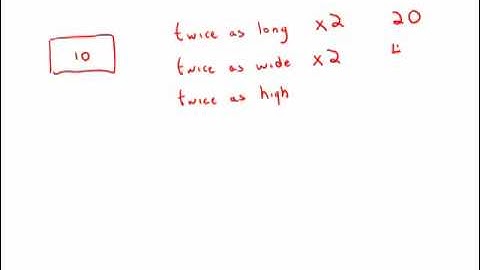 10
twice as long x2 20
twice as wide x2
twice as high